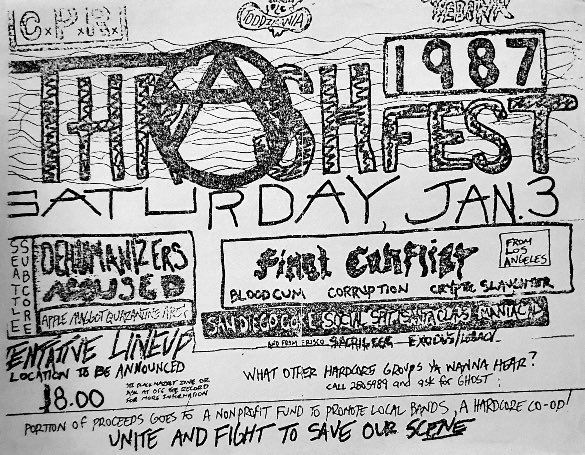 C.P.R.
1987
THRASHFEST
SATURDAY, JAN. 3
SEATTLE
SUBCORE
DEHUMANIZERS
ACCUSED
APPLE MAGGOT QUARANTINE AREA
Final Conflict
FROM
LOS
ANGELES
BLOODCUM CORRUPTION CRYPTIC SLAUGHTER
SAN DIEGO CO. SOCIAL SPIT MANIACAL
AND FROM FRISCO SACRILEGE EXODUS/LEGACY
TENTATIVE LINEUP
LOCATION TO BE ANNOUNCED
$8.00
FOR MORE INFORMATION
WHAT OTHER HARDCORE GROUPS YA WANNA HEAR?
CALL 2805989 and ask for GHOST
PORTION OF PROCEEDS GOES TO A NONPROFIT FUND TO PROMOTE LOCAL BANDS, A HARDCORE CO-OP!
UNITE AND FIGHT TO SAVE OUR SCENE